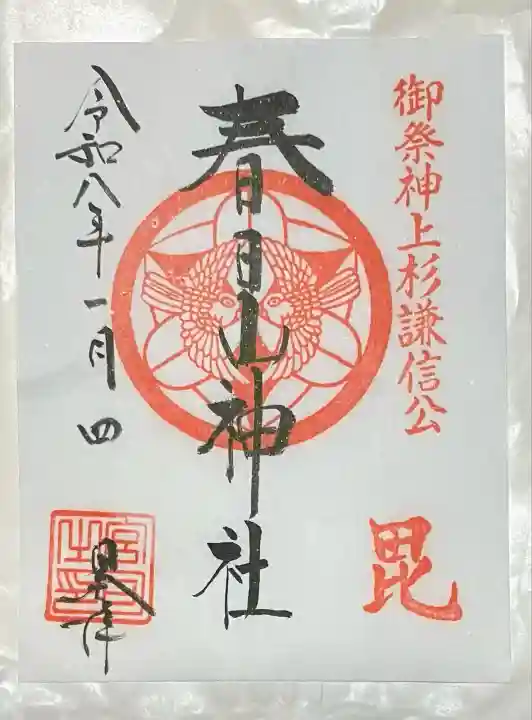 御祭神上杉謙信公
毘
春日山神社
令和八年一月四
日奉拝
宮司之印